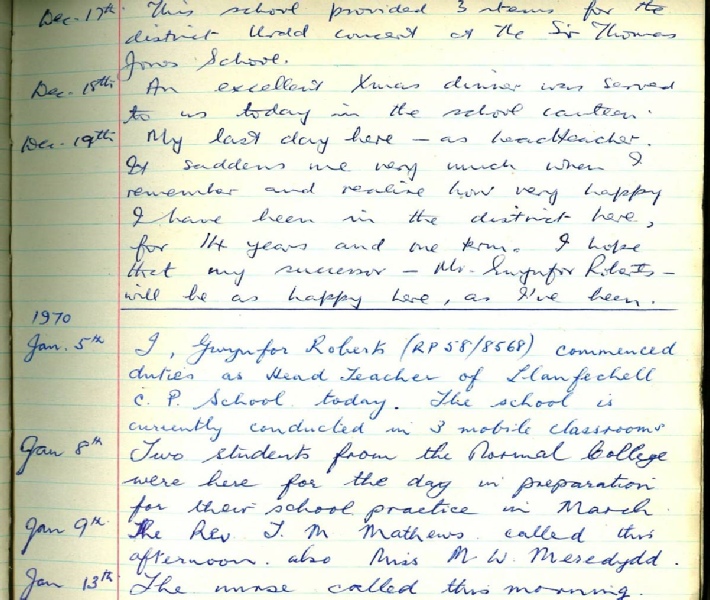 Dec. 17th This school provided 3 items for the
district Urdd concert at the Sir Thomas
Jones School.
Dec. 18th An excellent Xmas dinner was served
to us today in the school canteen.
Dec. 19th My last day here — as headteacher.
It saddens me very much when I
remember and realise how very happy
I have been in the district here,
for 14 years and one term. I hope
that my successor — Mr. Gwynfor Roberts —
will be as happy here, as I've been.
1970
Jan. 5th I, Gwynfor Roberts (RP 58/8568) commenced
duties as Head Teacher of Llanfechell
C. P. School today. The school is
currently conducted in 3 mobile classrooms
Jan 8th Two students from the Normal College
were here for the day in preparation
for their school practice in March
Jan 9th The Rev. T. M Mathews called this
afternoon. also Miss M. W. Meredydd.
Jan 13th The nurse called this morning.